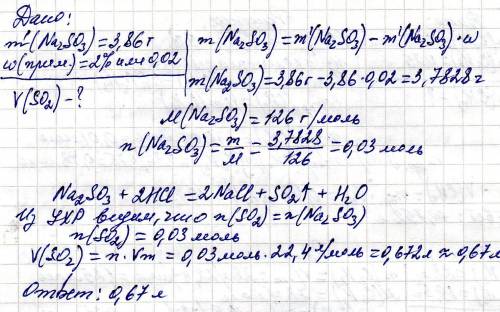 Дано:
m'(Na₂SO₃)=3,86г
w(прим)=2% или 0,02
V(SO₂)-?
m(Na₂SO₃)=m'(Na₂SO₃)-m'(Na₂SO₃)·w
m(Na₂SO₃)=3,86г-3,86·0,02=3,7828г
M(Na₂SO₃)=126 г/моль
n(Na₂SO₃)=m/M=3,7828/126=0,03моль
Na₂SO₃+2HCl=2NaCl+SO₂↑+H₂O
Из УХР видим, что n(SO₂)=n(Na₂SO₃)
n(SO₂)=0,03моль
V(SO₂)=n·Vm=0,03моль·22,4л/моль=0,672л≈0,67л
Ответ: 0,67л